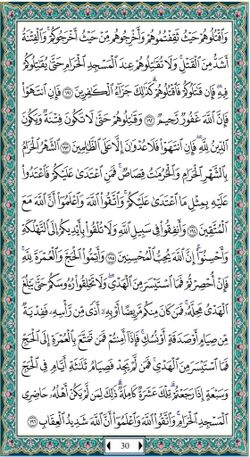 وَاقْتُلُوهُمْ حَيْثُ ثَقِفْتُمُوهُمْ وَأَخْرِجُوهُمْ مِنْ حَيْثُ أَخْرَجُوكُمْ وَالْفِتْنَةُ
أَشَدُّ مِنَ الْقَتْلِ وَلَا تُقَاتِلُوهُمْ عِنْدَ الْمَسْجِدِ الْحَرَامِ حَتَّى يُقَاتِلُوكُمْ
فِيهِ فَإِنْ قَاتَلُوكُمْ فَاقْتُلُوهُمْ كَذَلِكَ جَزَاءُ الْكَافِرِينَ ﴿١٩١﴾ فَإِنِ انْتَهَوْا
فَإِنَّ اللَّهَ غَفُورٌ رَحِيمٌ ﴿١٩٢﴾ وَقَاتِلُوهُمْ حَتَّى لَا تَكُونَ فِتْنَةٌ وَيَكُونَ
الدِّينُ لِلَّهِ فَإِنِ انْتَهَوْا فَلَا عُدْوَانَ إِلَّا عَلَى الظَّالِمِينَ ﴿١٩٣﴾ الشَّهْرُ الْحَرَامُ
بِالشَّهْرِ الْحَرَامِ وَالْحُرُمَاتُ قِصَاصٌ فَمَنِ اعْتَدَى عَلَيْكُمْ فَاعْتَدُوا
عَلَيْهِ بِمِثْلِ مَا اعْتَدَى عَلَيْكُمْ وَاتَّقُوا اللَّهَ وَاعْلَمُوا أَنَّ اللَّهَ مَعَ
الْمُتَّقِينَ ﴿١٩٤﴾ وَأَنْفِقُوا فِي سَبِيلِ اللَّهِ وَلَا تُلْقُوا بِأَيْدِيكُمْ إِلَى التَّهْلُكَةِ
وَأَحْسِنُوا إِنَّ اللَّهَ يُحِبُّ الْمُحْسِنِينَ ﴿١٩٥﴾ وَأَتِمُّوا الْحَجَّ وَالْعُمْرَةَ لِلَّهِ
فَإِنْ أُحْصِرْتُمْ فَمَا اسْتَيْسَرَ مِنَ الْهَدْيِ وَلَا تَحْلِقُوا رُءُوسَكُمْ حَتَّى يَبْلُغَ
الْهَدْيُ مَحِلَّهُ فَمَنْ كَانَ مِنْكُمْ مَرِيضًا أَوْ بِهِ أَذًى مِنْ رَأْسِهِ فَفِدْيَةٌ
مِنْ صِيَامٍ أَوْ صَدَقَةٍ أَوْ نُسُكٍ فَإِذَا أَمِنْتُمْ فَمَنْ تَمَتَّعَ بِالْعُمْرَةِ إِلَى الْحَجِّ
فَمَا اسْتَيْسَرَ مِنَ الْهَدْيِ فَمَنْ لَمْ يَجِدْ فَصِيَامُ ثَلَاثَةِ أَيَّامٍ فِي الْحَجِّ
وَسَبْعَةٍ إِذَا رَجَعْتُمْ تِلْكَ عَشَرَةٌ كَامِلَةٌ ذَلِكَ لِمَنْ لَمْ يَكُنْ أَهْلُهُ حَاضِرِي
الْمَسْجِدِ الْحَرَامِ وَاتَّقُوا اللَّهَ وَاعْلَمُوا أَنَّ اللَّهَ شَدِيدُ الْعِقَابِ ﴿١٩٦﴾
30